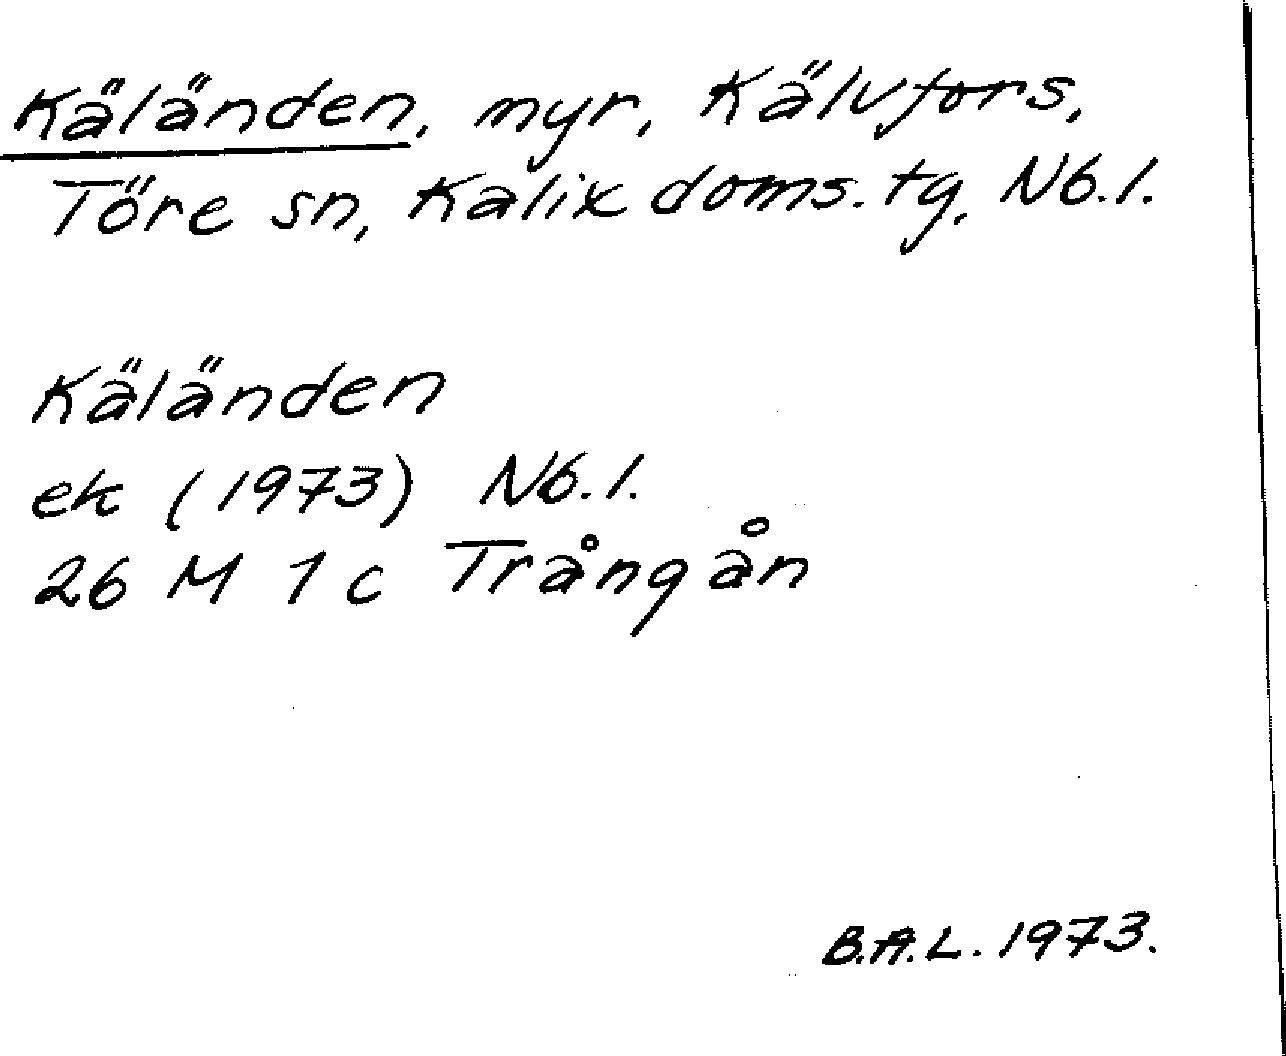 Käländen, myr, Kälvfors,
Töre sn, Kalix doms. tg, Nb. l.
Käländen
ek (1973) Nb. l.
26 M 1 c Trångån
B.A.L. 1973.